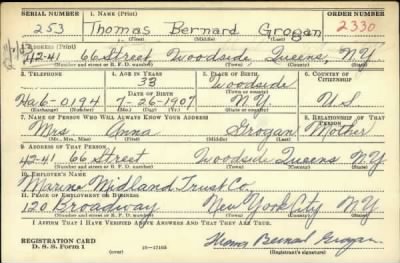 SERIAL NUMBER 1. NAME (Print) ORDER NUMBER
253 Thomas Bernard Grogan 2330
(First) (Middle) (Last)
2. ADDRESS (Print)
42-41 66 Street Woodside, Queens, N.Y.
(Number and street or R. F. D. number) (Town) (County) (State)
3. TELEPHONE 4. AGE IN YEARS 5. PLACE OF BIRTH 6. COUNTRY OF CITIZENSHIP
33 Woodside
DATE OF BIRTH (Town or county)
Ha6-0194 7-26-1907 N.Y. U.S.
(Exchange) (Number) (Mo.) (Day) (Yr.) (State or country)
7. NAME OF PERSON WHO WILL ALWAYS KNOW YOUR ADDRESS 8. RELATIONSHIP OF THAT PERSON
Mrs Anna Grogan Mother
(Mr., Mrs., Miss) (First) (Middle) (Last)
9. ADDRESS OF THAT PERSON
42-41 66 Street Woodside Queens N.Y
(Number and street or R. F. D. number) (Town) (County) (State)
10. EMPLOYER'S NAME
Marine Midland Trust Co.
11. PLACE OF EMPLOYMENT OR BUSINESS
120 Broadway New York City N.Y
(Number and street or R. F. D. number) (Town) (County) (State)
I AFFIRM THAT I HAVE VERIFIED ABOVE ANSWERS AND THAT THEY ARE TRUE.
REGISTRATION CARD
D. S. S. Form 1 (over) 16—17105 Thomas Bernard Grogan